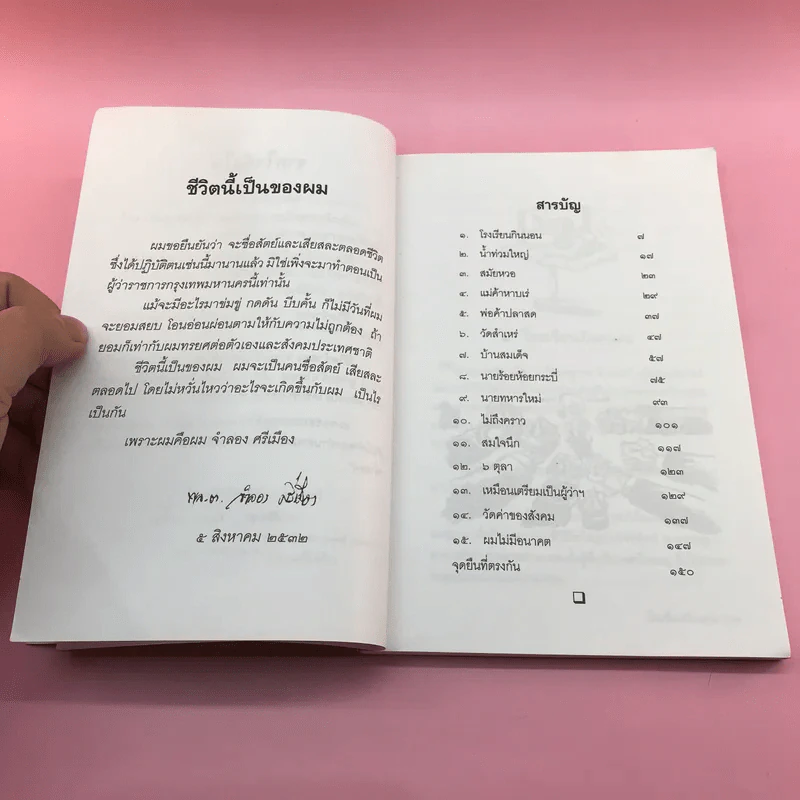 ชีวิตนี้เป็นของผม
ผมขอยืนยันว่า จะซื่อสัตย์และเสียสละตลอดชีวิต
ซึ่งได้ปฏิบัติตนเช่นนี้มานานแล้ว มิใช่เพิ่งจะมาทำตอนเป็น
ผู้ว่าราชการกรุงเทพมหานครนี้เท่านั้น
แม้จะมีอะไรมาข่มขู่ กดดัน บีบคั้น ก็ไม่มีวันที่ผม
จะยอมสยบ โอนอ่อนผ่อนตามให้กับความไม่ถูกต้อง ถ้า
ยอมก็เท่ากับผมทรยศต่อตัวเองและสังคมประเทศชาติ
ชีวิตนี้เป็นของผม ผมจะเป็นคนซื่อสัตย์ เสียสละ
ตลอดไป โดยไม่หวั่นไหวว่าอะไรจะเกิดขึ้นกับผม เป็นไร
เป็นกัน
เพราะผมคือผม จำลอง ศรีเมือง
พล.ต. จำลอง ศรีเมือง
๕ สิงหาคม ๒๕๓๒
สารบัญ
๑. โรงเรียนกินนอน ๗
๒. น้ำท่วมใหญ่ ๑๗
๓. สมัยหวอ ๒๓
๔. แม่ค้าหาบเร่ ๒๙
๕. พ่อค้าปลาสด ๓๗
๖. วัดสำเหร่ ๔๗
๗. บ้านสมเด็จ ๕๗
๘. นายร้อยห้อยกระบี่ ๗๕
๙. นายทหารใหม่ ๙๓
๑๐. ไม่ถึงคราว ๑๐๑
๑๑. สมใจนึก ๑๑๗
๑๒. ๖ ตุลา ๑๒๓
๑๓. เหมือนเตรียมเป็นผู้ว่าฯ ๑๒๙
๑๔. วัดค่าของสังคม ๑๓๗
๑๕. ผมไม่มีอนาคต ๑๔๗
จุดยืนที่ตรงกัน ๑๕๐